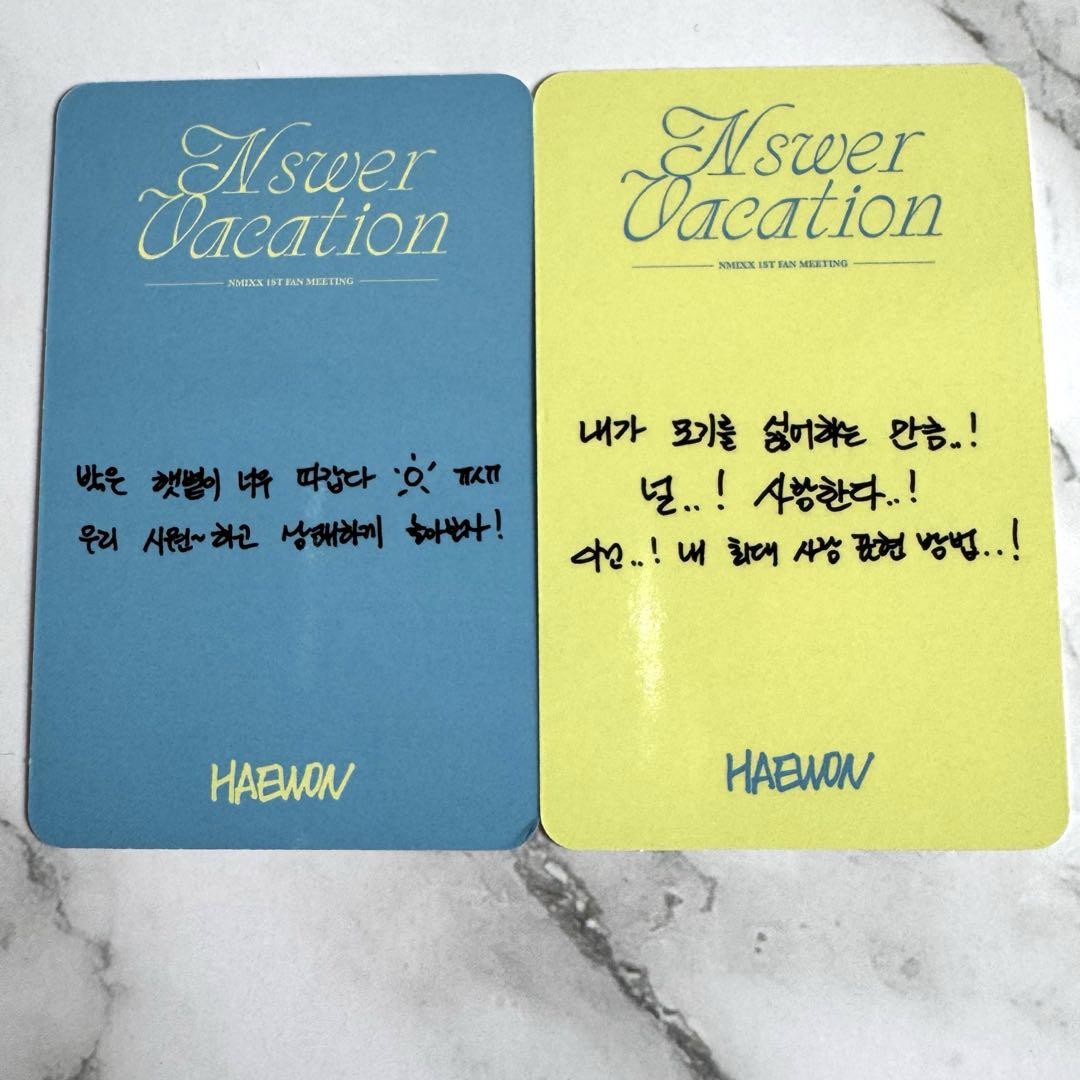 Nswer
Vacation
NMIXX 1ST FAN MEETING
밖은 햇볕이 너무 따갑다 ㅠㅅㅠ
우리 시원~하고 상쾌하게 놀아보자!
HAEWON
Nswer
Vacation
NMIXX 1ST FAN MEETING
내가 모기를 싫어하는 만큼..!
널..! 사랑한다..!
이건..! 내 최대 사랑 표현 방법..!
HAEWON